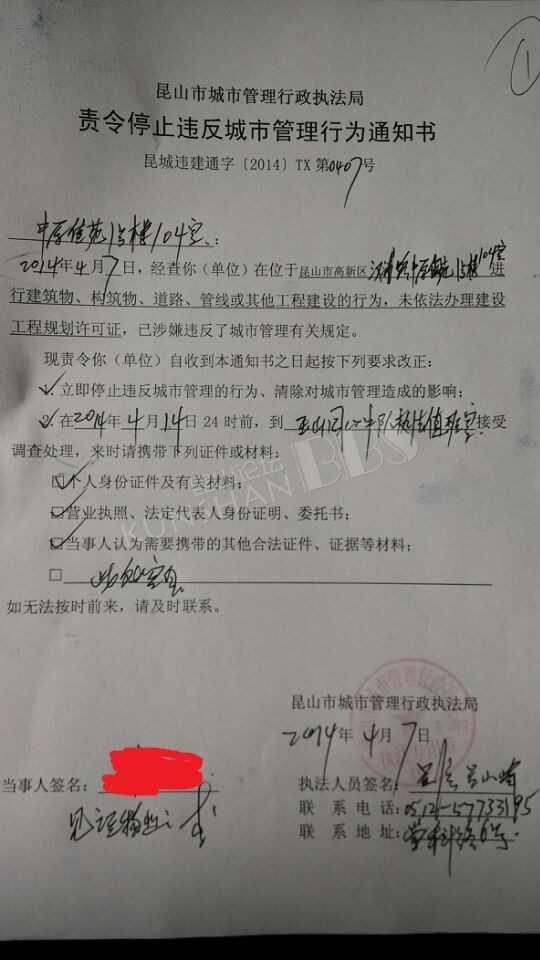 1
昆山市城市管理行政执法局
责令停止违反城市管理行为通知书
昆城违建通字〔2014〕TX 第0407号
中房佳苑 1号楼104室:
2014年4月7日，经查你（单位）在位于昆山市高新区 1号楼104室进
行建筑物、构筑物、道路、管线或其他工程建设的行为，未依法办理建设
工程规划许可证，已涉嫌违反了城市管理有关规定。
现责令你（单位）自收到本通知书之日起按下列要求改正：
1. 立即停止违反城市管理的行为、清除对城市管理造成的影响；
2. 在2014年4月14日24时前，到 中队执法值班室 接受
调查处理，来时请携带下列证件或材料：
☑个人身份证件及有关材料；
☑营业执照、法定代表人身份证明、委托书；
☑当事人认为需要携带的其他合法证件、证据等材料；
□
如无法按时前来，请及时联系。
昆山论坛
KUNSHAN BBS
昆山市城市管理行政执法局
2014年4月7日
当事人签名：
执法人员签名：
联 系 电 话：0512-57733195
联 系 地 址：